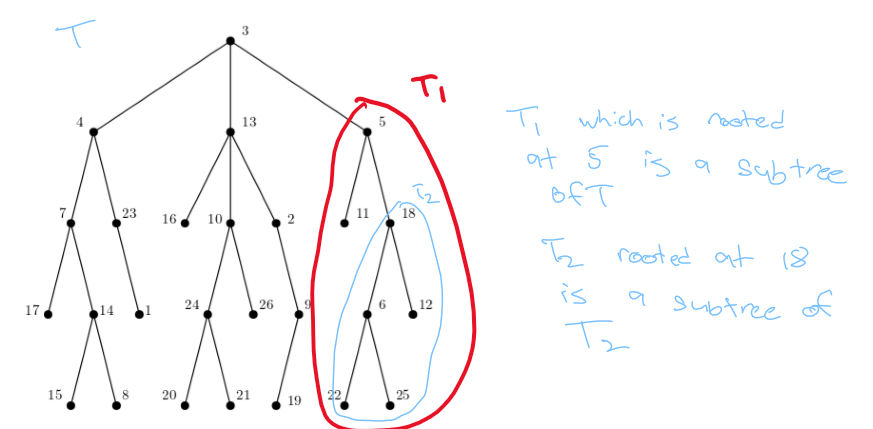 T
3
T1
4 13 5
T2
7 23 16 10 2 11 18
17 14 1 24 26 9 6 12
15 8 20 21 19 22 25
T1 which is rooted
at 5 is a subtree
of T
T2 rooted at 18
is a subtree of
T2